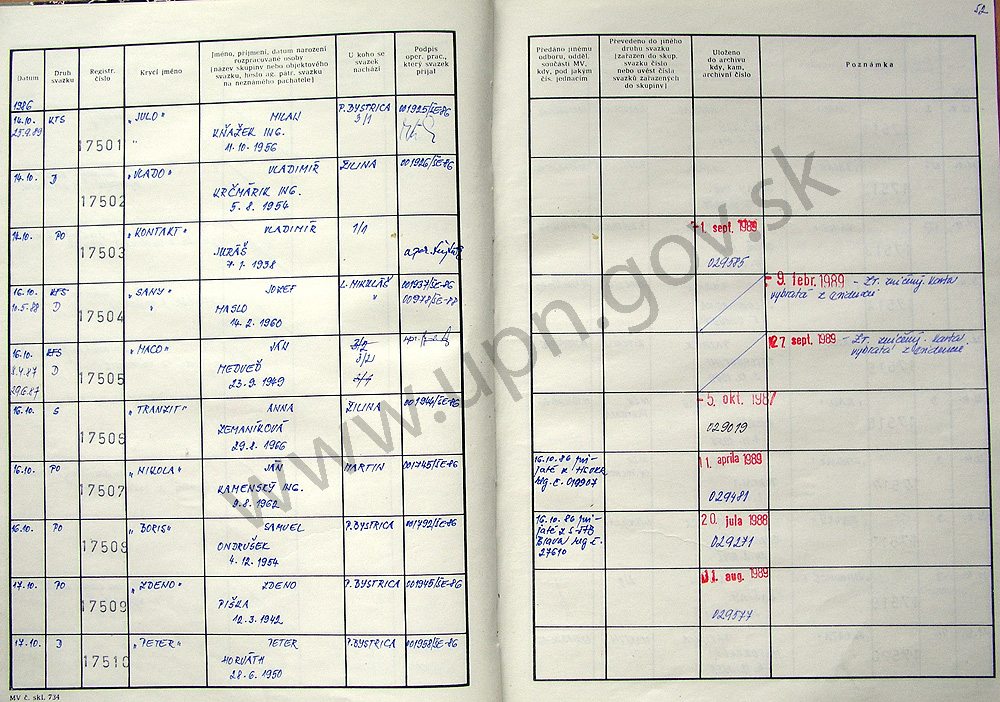 52
Datum
Druh svazku
Registr. číslo
Krycí jméno
Jméno, příjmení, datum narození
rozpracované osoby
(název skupiny nebo objektového
svazku, heslo ag. pátr. svazku
na neznámého pachatele)
U koho se
svazek
nachází
Podpis
oper. prac.,
který svazek
přijal
Předáno jinému
odboru, odděl.
součásti MV,
kdy, pod jakým
čís. jednacím
Převedeno do jiného
druhu svazku
(zařazen do skup.
svazku číslo
nebo uvést čísla
svazků zařazených
do skupiny)
Uloženo
do archivu
kdy, kam,
archivní číslo
Poznámka
1986
14.10. KTS 17501 „JULO" MILAN P. BYSTRICA 001925/ŠE-86
25.9.89 " KŇAŽEK ING. 3/1
11.10.1956
14.10. D 17502 „VLADO" VLADIMÍR ŽILINA 001926/ŠE-86
KRČMÁRIK ING.
5.8.1954
14.10. PO 17503 „KONTAKT" VLADIMÍR 1/1 1. sept. 1989
JURÁŠ
7.1.1938 029585
16.10. KFS 17504 „SANY" JOZEF L. MIKULÁŠ 001937/ŠE-86 9. febr. 1989 - Zr. zničený. karta
10.5.88 D " MASLO " 00978/ŠE-88 vybratá z evidencií
14.2.1960
16.10. KFS 17505 „MACO" JÁN 27 sept. 1989 - Zr. zničený. karta
8.4.87 D MEDVEĎ 3/2 vybratá z evidencie.
29.6.87 23.9.1949
16.10. S 17506 „TRANZIT" ANNA ŽILINA 001944/ŠE-86 5. okt. 1987
ZEMANÍKOVÁ 029019
29.8.1966
16.10. PO 17507 „NIKOLA" JÁN MARTIN 001745/ŠE-86 16.10.86 pri- 11. apríla 1989
KAMENSKÝ ING. jaté z
9.8.1962 reg. č. 019907 029481
16.10. PO 17508 „BORIS" SAMUEL P. BYSTRICA 001792/ŠE-86 16.10.86 pri- 20. júla 1988
ONDRUŠEK jaté z S-ŠTB 029271
4.12.1954 Brava reg. č.
27610
17.10. PO 17509 „ZDENO" ZDENO P. BYSTRICA 001945/ŠE-86 11. aug. 1989
PIŠKA
12.3.1942 029577
17.10. D 17510 „PETER" PETER P. BYSTRICA 001958/ŠE-86
HORVÁTH
28.6.1950
MV č. skl. 734
www.upn.gov.sk